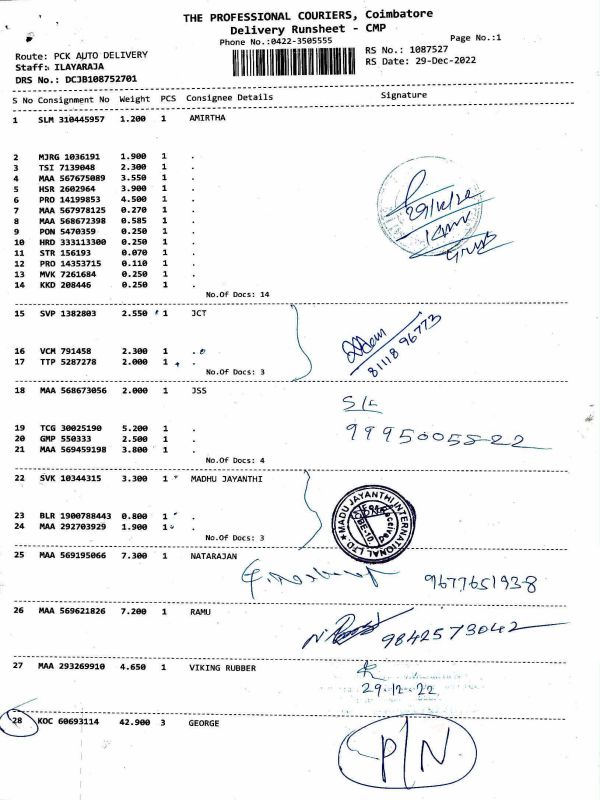 THE PROFESSIONAL COURIERS, Coimbatore
Delivery Runsheet - CMP
Phone No.:0422-3505555
Page No.:1
Route: PCK AUTO DELIVERY
RS No.: 1087527
Staff: ILAYARAJA
RS Date: 29-Dec-2022
DRS No.: DCJB108752701
S No Consignment No Weight PCS Consignee Details Signature
1 SLM 310445957 1.200 1 AMIRTHA
2 MJRG 1036191 1.900 1 .
3 TSI 7139048 2.300 1 .
4 MAA 567675089 3.550 1 .
5 HSR 2602964 3.900 1 .
6 PRO 14199853 4.500 1 .
7 MAA 567978125 0.270 1 .
8 MAA 568672398 0.585 1 .
9 PON 5470359 0.250 1 .
10 HRD 333113300 0.250 1 .
11 STR 156193 0.070 1 .
12 PRO 14353715 0.110 1 .
13 MVK 7261684 0.250 1 .
14 KKD 208446 0.250 1 .
29/12/22
No.Of Docs: 14
15 SVP 1382803 2.550 1 JCT
16 VCM 791458 2.300 1 .
17 TTP 5287278 2.000 1 .
8118 96773
No.Of Docs: 3
18 MAA 568673056 2.000 1 JSS
S/c
19 TCG 30025190 5.200 1 .
20 GMP 550333 2.500 1 .
21 MAA 569459198 3.800 1 .
9995005522
No.Of Docs: 4
22 SVK 10344315 3.300 1 MADHU JAYANTHI
23 BLR 1900788443 0.800 1 .
24 MAA 292703929 1.900 1 .
MADU JAYANTHI INTERNATIONAL LTD
No.Of Docs: 3
25 MAA 569195066 7.300 1 NATARAJAN
9677651938
26 MAA 569621826 7.200 1 RAMU
9842573042
27 MAA 293269910 4.650 1 VIKING RUBBER
29.12.22
28 KOC 60693114 42.900 3 GEORGE
P/N